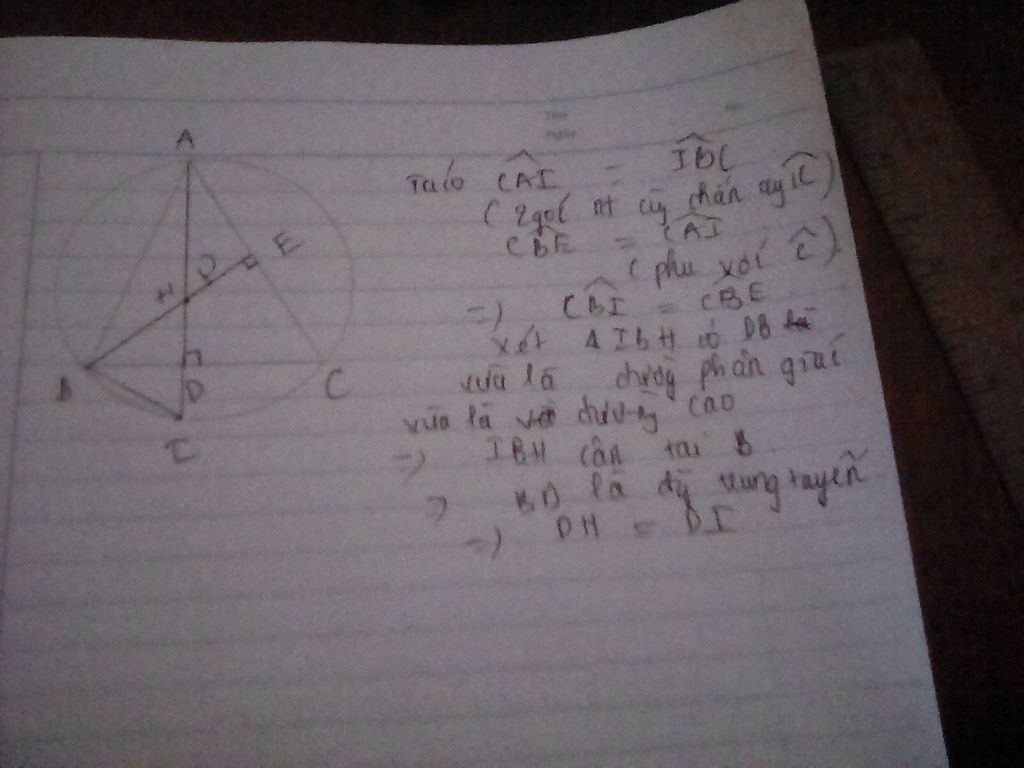 A
E
H
B
D
C
I
Ta có CAI = IBC
(2 góc nt cùg chắn cung IC)
CBE = CAI
(phụ với C)
=) CBI = CBE
xét Δ IBH có DB
vừa là đường phân giác
vừa là đường cao
=) IBH cân tại B
=) BD là đg trung tuyến
=) DH = DI